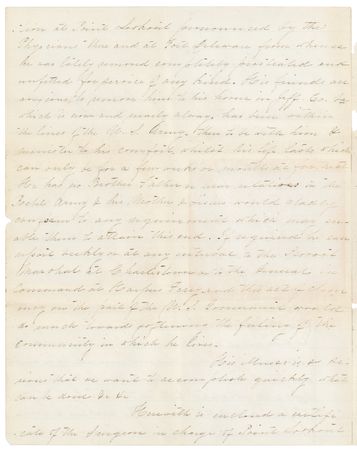 tion at Point Lookout pronounced by the
Physicians there and at Fort Delaware from whence
he was lately removed completely prostrated and
unfitted for service of any kind. His friends are
anxious to remove him to his home in Jeff. Co. Va
which is now and nearly always has been within
the lines of the U. S. Army, then to be with him &
promote to his comfort, whilst his life lasts which
can only be for a few weeks or months at furthest
He has no Brother Father or near relations in the
Rebel Army & his Mother & sisters would gladly
consent to any requirement which may en-
able them to attain this end. If required he can
report weekly or at any interval to the Provost
Marshal at Charlestown or to the General in
Command at Harpers Ferry, and this act of clem-
ency on the part of the U. S. Government would do
as much towards softening the feeling of the
community in which he lives.
His is so
rious that we want to accomplish quickly what
can be done &c &c
Herewith is enclosed a certifi-
cate of the Surgeon in charge of Point Lookout